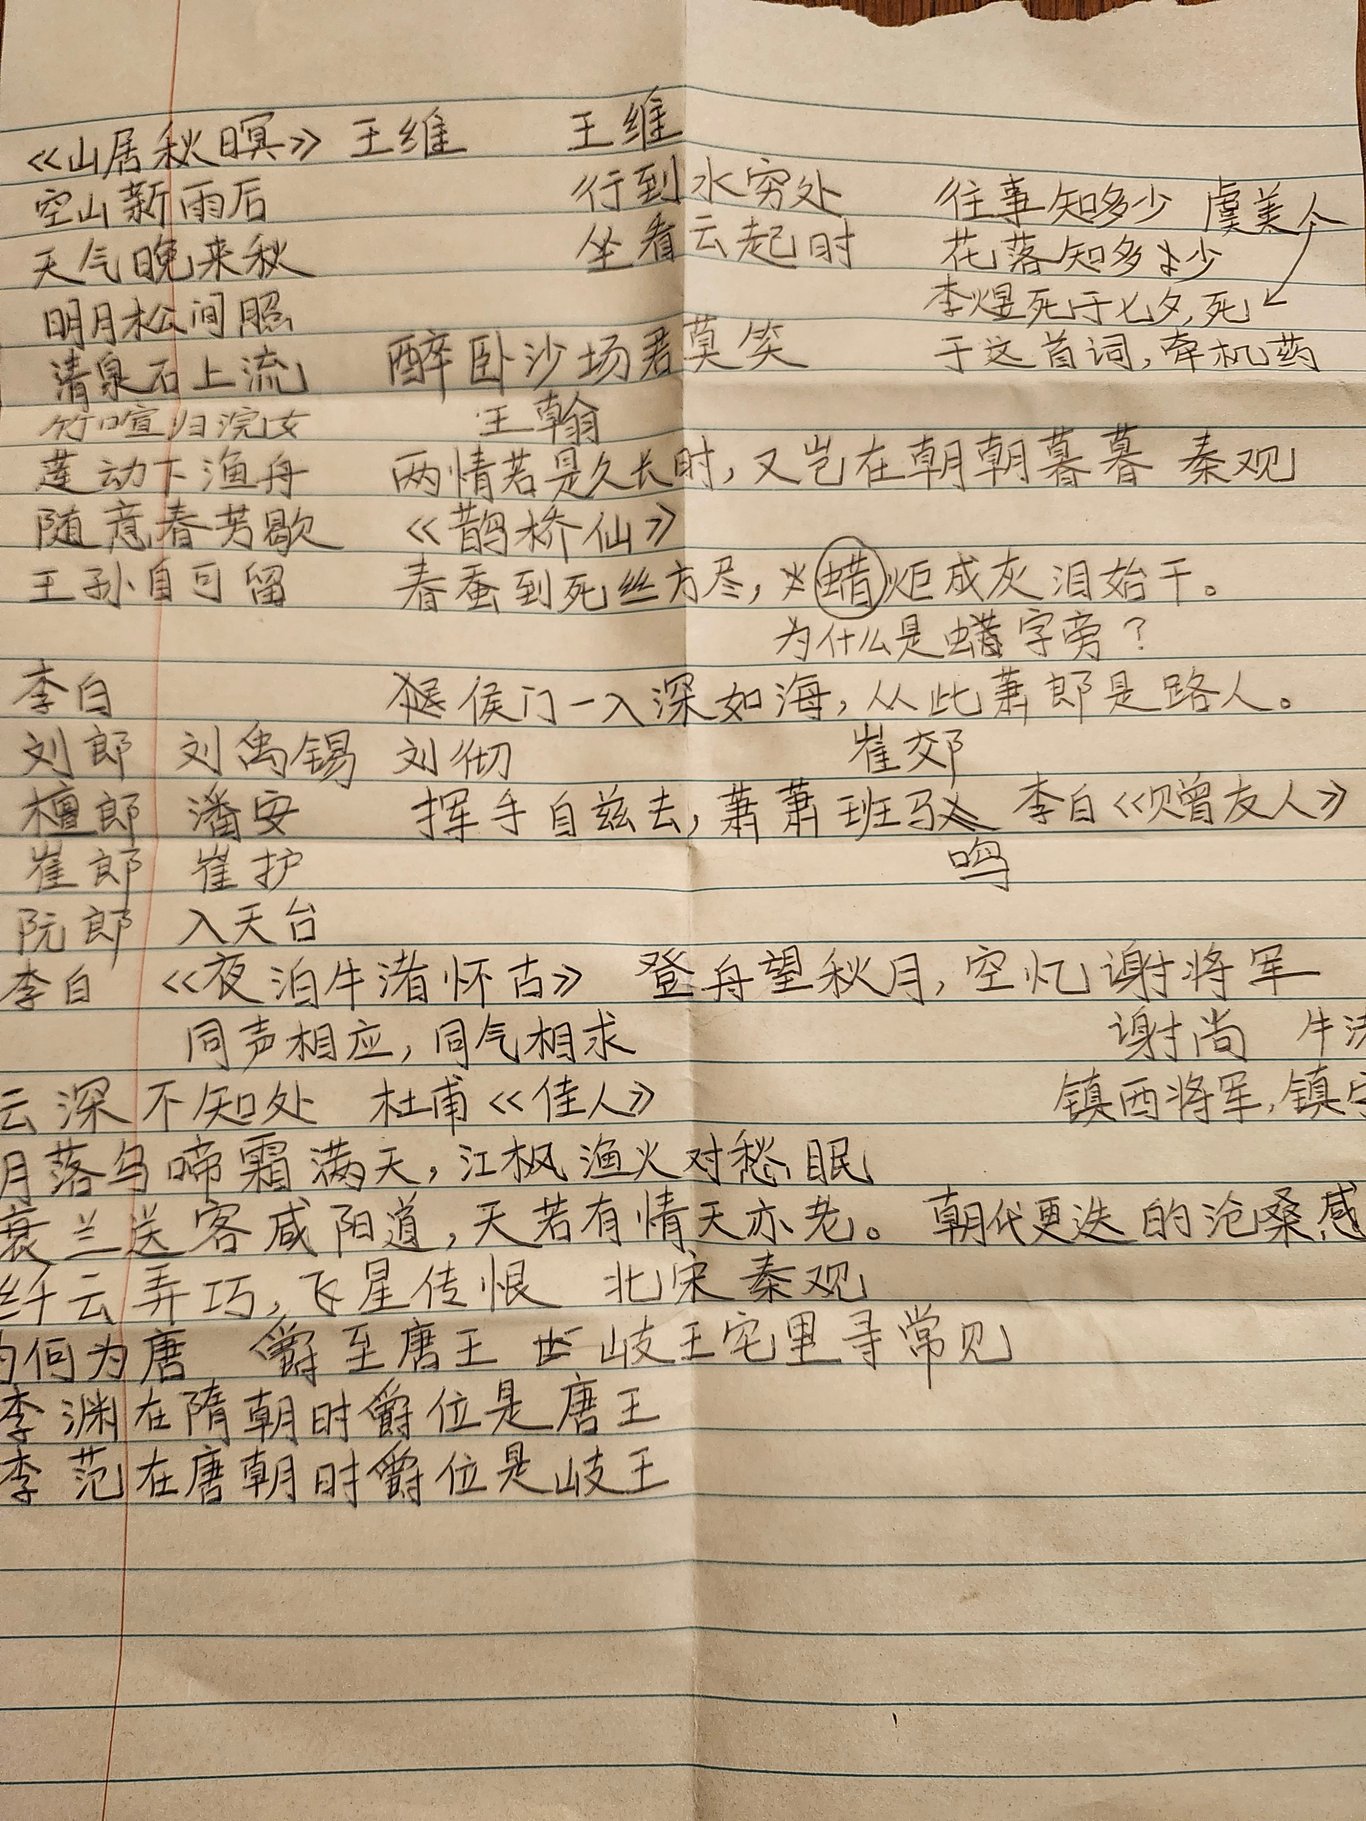 《山居秋暝》 王维 王维
空山新雨后 行到水穷处 往事知多少 虞美人
天气晚来秋 坐看云起时 花落知多少
明月松间照 李煜死于七夕,死
清泉石上流 醉卧沙场君莫笑 于这首词,牵机药
竹喧归浣女 王翰
莲动下渔舟 两情若是久长时,又岂在朝朝暮暮 秦观
随意春芳歇 《鹊桥仙》
王孙自可留 春蚕到死丝方尽,蜡炬成灰泪始干。
为什么是蜡字旁?
李白 侯门一入深如海,从此萧郎是路人。
刘郎 刘禹锡 刘彻 崔郊
檀郎 潘安 挥手自兹去,萧萧班马 李白《赠友人》
崔郎 崔护 鸣
阮郎 入天台
李白 《夜泊牛渚怀古》 登舟望秋月,空忆谢将军
同声相应,同气相求 谢尚 牛
云深不知处 杜甫《佳人》 镇西将军,镇
月落乌啼霜满天,江枫渔火对愁眠
衰兰送客咸阳道,天若有情天亦老。 朝代更迭的沧桑感
纤云弄巧,飞星传恨 北宋 秦观
何为唐 爵至唐王 岐王宅里寻常见
李渊在隋朝时爵位是唐王
李范在唐朝时爵位是岐王